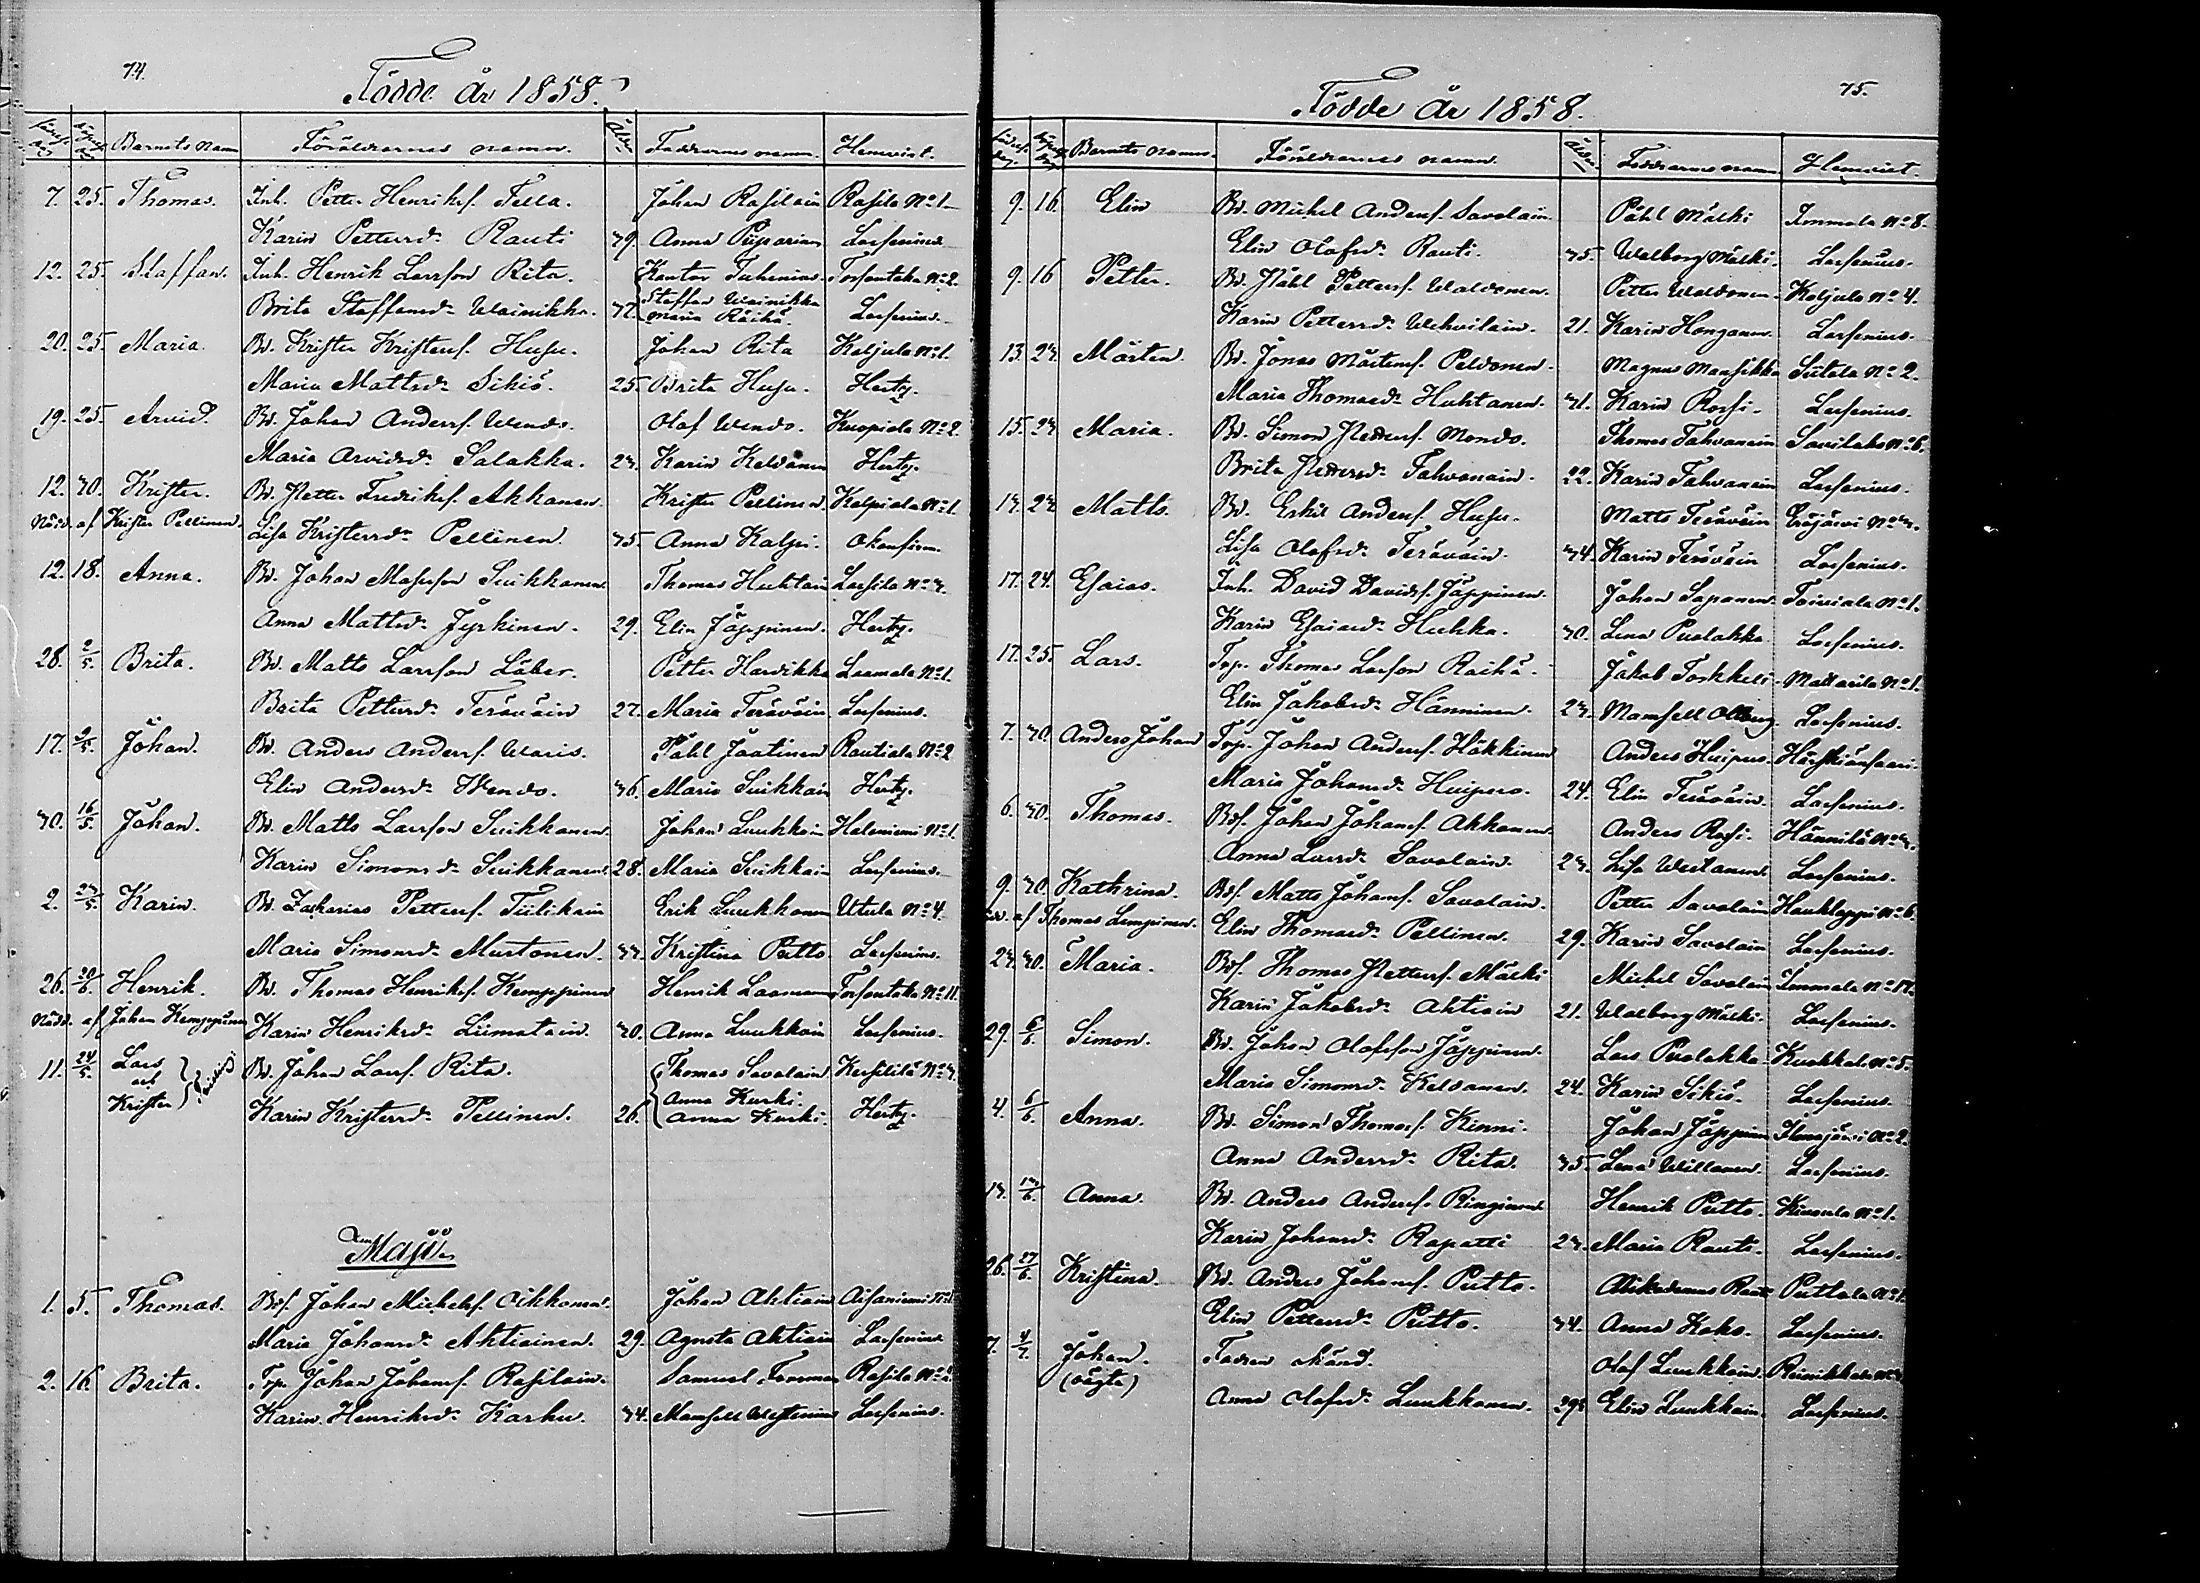 74.
Födde år 1858.
Födelse dag döpelse dag Barnets namn Föräldrarnes namn. Ålder Faddrarnes namn. Hemvist.
7. 25. Thomas. Inh. Petter Henriksf. Tella. Johan Rasilain Rasila No 1.
Karin Pettersd. Rauti 39. Anna Piiparinen Lasenius
12. 25. Staffan. Inh. Henrik Larsson Rita. Kantor Tuhenius Torsantaka No 2.
Brita Staffansd. Wainikka. 37. Staffan Wainikka Maria Räihä. Lasenius.
20. 25. Maria. Bd. Krister Kristersf. Husu. Johan Rita Koljula No 1.
Maria Mattsd. Sikiö. 25. Brita Husu. Hertz.
19. 25. Arvid. Bd. Johan Andersf. Wendo. Olaf Wendo. Kuopiala No 2.
Maria Arvidsd. Salakka. 23. Karin Keldanen Hertz.
12. 30. Krister. Bd. Petter Fredriksf. Akkanen. Krister Pellinen Kolpiala No 1.
Nödd. af Krister Pellinen. Lisa Kristersd. Pellinen. 35. Anna Kolpi. Okonfirm.
12. 18. Anna. Bd. Johan Matsson Suikkanen Thomas Huhtain Lassila No 3.
Anna Mattsd. Jyrkinen. 29. Elin Jäppinen. Hertz.
28. 2/5. Brita. Bd. Matts Larsson Läber. Petter Hardikka Laamala No 1.
Brita Pettersd. Teräväin 27. Maria Teräväin Lasenius.
17. 2/5. Johan. Bd. Anders Andersf. Waris. Påhl Jaatinen Rautiala No 2
Elin Andersd. Wendo. 36. Maria Suikkain Hertz.
30. 16/5. Johan. Bd. Matts Larsson Suikkanen Johan Luukkain Haloniemi No 1.
Karin Simonsd. Suikkanen. 28. Maria Suikkain Lasenius.
2. 23/5. Karin. Bd. Zacharias Pettersf. Tiilikain Erik Luukkonen Utula No 4.
Maria Simonsd. Murtonen. 33. Kristina Putto Lasenius.
26. 20/6. Henrik. Bd. Thomas Henriksf. Kemppinen Henrik Laamanen Torsantaka No 11.
Nödd. af Johan Kemppinen Karin Henriksd. Liimatain. 30. Anna Luukkain Lasenius.
11. 24/5. Lars och Krister Bd. Johan Larsf. Rita. Thomas Savolain Kesälilä No 3.
Karin Kristersd. Pellinen. 26. Anna Kurki. Anna Kurki. Hertz.
Maji
1. 5. Thomas. Bdf. Johan Michelsf. Oikkonen. Johan Ahtiain Aisaniemi No 1
Maria Johansd. Ahtiainen. 29. Agneta Ahtiain Lasenius
2. 16. Brita. Trp. Johan Johansf. Rasilain. Samuel Forsman Rasila No 2.
Karin Henriksd. Karhu. 34. Mamsell Westenius Lasenius.
75.
Födde År 1858.
Födelse dag döpelse dag Barnets namn. Föräldrarnes namn. Ålder Faddrarnes namn Hemvist.
9. 16. Elin Bd. Michel Andersf. Savolain Påhl Mälki Immala No 8.
Elin Olofsd. Rauti. 35. Walborg Mälki. Lasenius.
9. 16 Petter. Bd. Påhl Pettersf. Waldonen. Petter Waldonen. Koljula No 4.
Karin Pettersd. Wehvilain. 21. Karin Honganen. Lasenius.
13. 23. Mårten. Bd. Jonas Mårtensf. Peldonen. Magnus Mansikka Siitola No 2.
Maria Thomasd. Huhtanen. 31. Karin Rossi. Lasenius.
15. 23 Maria. Bd. Simon Pettersf. Mondo. Thomas Tahvanain Savilahti No 6.
Brita Pettersd. Tahvanain. 22. Karin Tahvanain Lasenius.
13. 23 Matts. Bd. Eskil Andersf. Husu. Matts Teräväin Eräjärvi No 3.
Lisa Olofsd. Teräväin. 34. Karin Teräväin Lasenius.
17. 24. Esaias. Inh. David Davidsf. Jäppinen. Johan Saponen Toiviala No 1.
Karin Esaiasd. Huhka. 30. Lena Puolakka Lasenius.
17. 25. Lars. Trp. Thomas Larsson Raihä. Jakob Torkkeli Mattarila No 1.
Elin Jakobsd. Hänninen. 23. Mamsell Lasenius.
7. 30. Anders Johan Trp. Johan Andersf. Häkkinen Anders Huipero
Maria Johansd. Huipero. 24. Elin Teräväin. Lasenius.
6. 30. Thomas. Bdf. Johan Johansf. Akkanen Anders Rossi. Hännilä No 3.
Anna Larsd. Savolain. 23. Lisa Westanen Lasenius.
9. 30. Kathrina. Bdf. Matts Johansf. Savolain. Petter Savolain Hauklappi No 6.
af Thomas Lumpinen. Elin Thomasd. Pellinen. 29. Karin Savolain Lasenius.
23. 30. Maria. Bdf. Thomas Pettersf. Mälki Michel Savolain Immala No 17.
Karin Jakobsd. Ahtiain 21. Walborg Mälki. Lasenius.
29. 6/6. Simon. Bd. Johan Olofsson Jäppinen. Lars Puolakka Kuokkala No 5.
Maria Simonsd. Keldanen. 24. Karin Sikiö. Lasenius.
4. 6/6. Anna. Bd. Simon Thomasf. Kinni. Johan Jäppinen Ilmajärvi No 2.
Anna Andersd. Rita. 35. Lena Willanen. Lasenius.
13. 13/6. Anna. Bd. Anders Andersf. Ringinen Henrik Putto. No 1.
Karin Johansd. Rapatti 23. Maria Rauti. Lasenius.
26. 27/6. Kristina. Bd. Anders Johansf. Putto. Nikodemus Rauti Puttola No 1.
Elin Pettersd. Putto. 34. Anna Koho. Lasenius.
7. 4/7. Johan. (oägta) Fadren okänd. Olof Luukkain Reinikkala No 3
Anna Olofsd. Luukkanen. 29. Elin Luukkain. Lasenius.